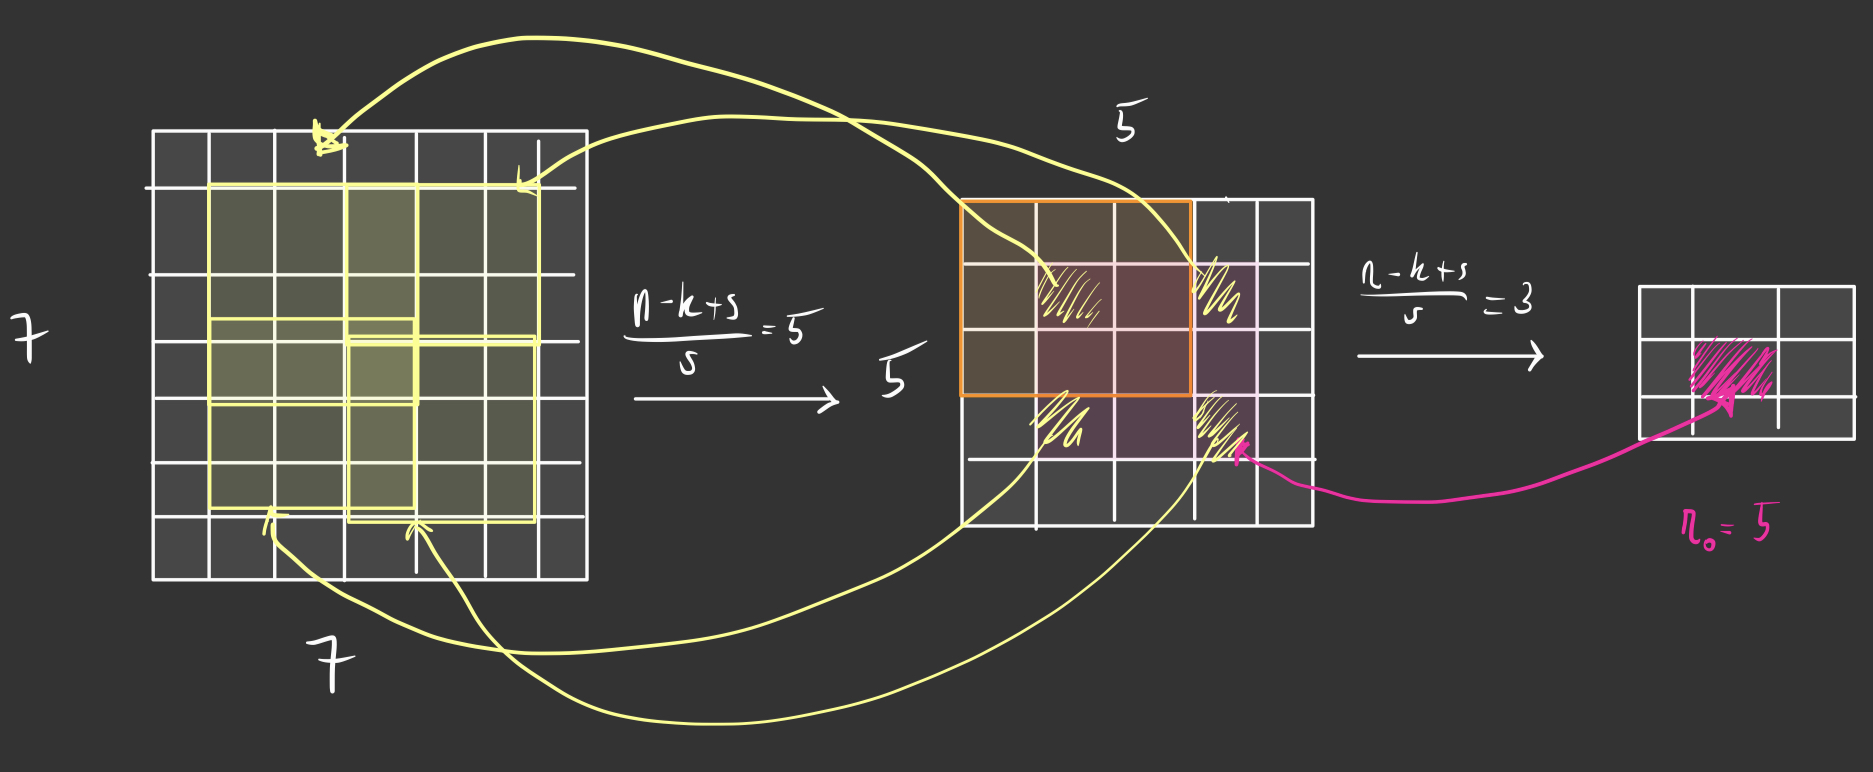 7
7
n-k+s
s
= 5
5
5
n-k+s
s
= 3
n₀ = 5